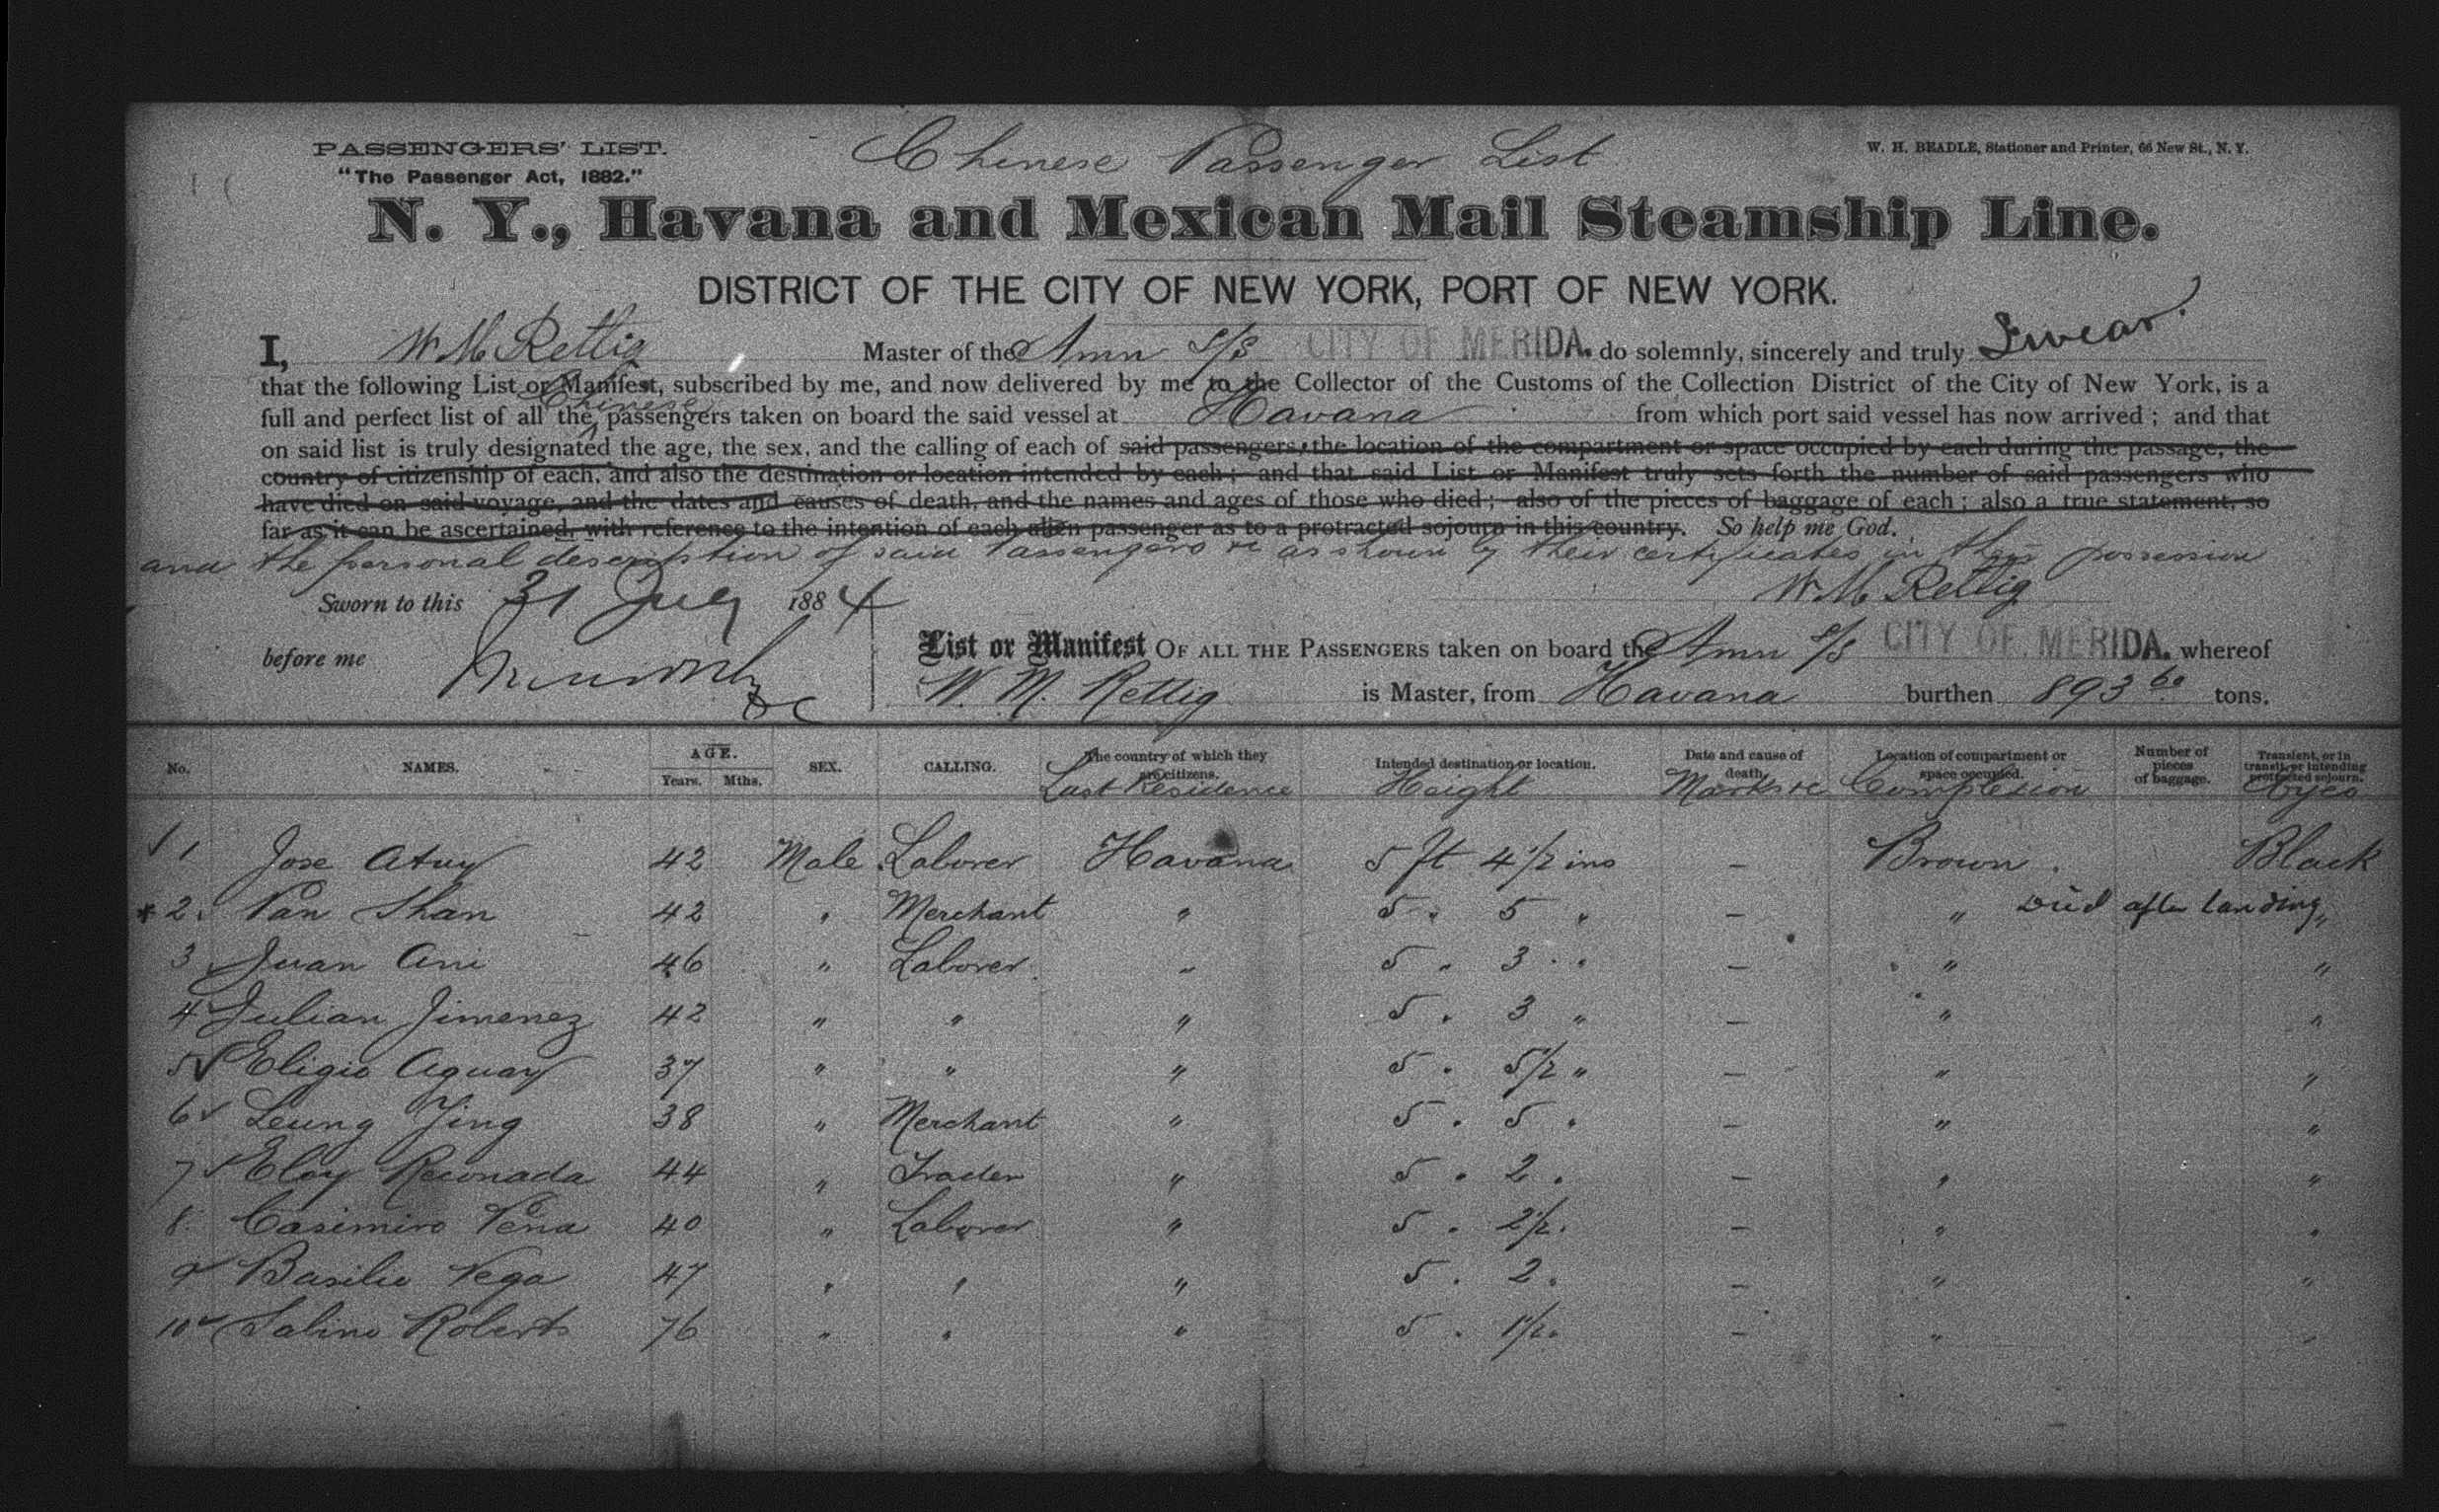 PASSENGERS' LIST.
"The Passenger Act, 1882."
Chinese Passenger List
W. H. BEADLE, Stationer and Printer, 66 New St., N. Y.
N. Y., Havana and Mexican Mail Steamship Line.
DISTRICT OF THE CITY OF NEW YORK, PORT OF NEW YORK.
I, W. M. Rettig Master of the Amn S/S CITY OF MERIDA. do solemnly, sincerely and truly Swear.
that the following List or Manifest, subscribed by me, and now delivered by me to the Collector of the Customs of the Collection District of the City of New York, is a
full and perfect list of all the Chinese passengers taken on board the said vessel at Havana from which port said vessel has now arrived; and that
on said list is truly designated the age, the sex, and the calling of each of said passengers, the location of the compartment or space occupied by each during the passage, the
country of citizenship of each, and also the destination or location intended by each; and that said List or Manifest truly sets forth the number of said passengers who
have died on said voyage, and the dates and causes of death, and the names and ages of those who died; also of the pieces of baggage of each; also a true statement, so
far as it can be ascertained, with reference to the intention of each alien passenger as to a protracted sojourn in this country. So help me God.
and the personal description of said Passengers &c as shown by their certificates in their possession
W. M. Rettig
Sworn to this 31 July 1884
before me
List or Manifest OF ALL THE PASSENGERS taken on board the Amn S/S CITY OF MERIDA. whereof
W. M. Rettig is Master, from Havana burthen 893 60 tons.
No. NAMES. AGE. Years. Mths. SEX. CALLING. The country of which they are citizens. Intended destination or location. Date and cause of death. Location of compartment or space occupied. Number of pieces of baggage. Transient, or in transit, or intending protracted sojourn.
Last Residence Height Marks &c Complexion Eyes
1 Jose Atuy 42 Male Laborer Havana 5 ft 4 1/2 ins — Brown Black
* 2. Pan Shan 42 " Merchant " 5 " 5 " — " Died after landing "
3 Juan Ani 46 " Laborer " 5 " 3 " — " "
4 Julian Jimenez 42 " " " 5 " 3 " — " "
5 Eligio Aguay 37 " " " 5 " 5 1/2 " — " "
6 Leung Jing 38 " Merchant " 5 " 5 " — " "
7 Eloy Reconada 44 " Trader " 5 " 2 " — " "
8. Casimiro Peña 40 " Laborer " 5 " 2 1/2 " — " "
9 Basilio Vega 47 " " " 5 " 2 " — " "
10 Salino Roberts 76 " " " 5 " 1 1/2 " — " "